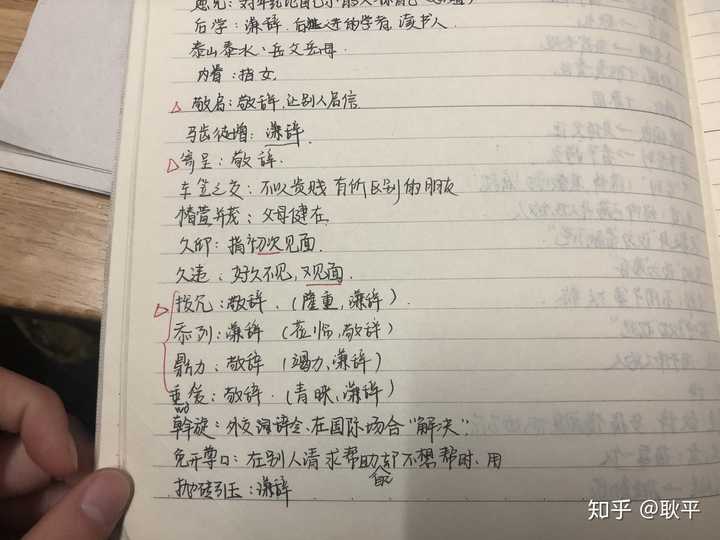 后学：谦辞，后进的学者、读书人．
泰山泰水：岳父岳母．
内眷：指女．
敬启：敬辞，让别人启信
马齿徒增：谦辞．
寄呈：敬辞．
车笠之交：不以贵贱有价区别的朋友
椿萱并茂：父母健在．
久仰：指初次见面．
久违：好久不见，又见面．
拨冗：敬辞．（隆重，谦辞）．
忝列：谦辞（莅临，敬辞）
鼎力：敬辞（竭力，谦辞）
垂爱：敬辞．（青睐，谦辞）
斡旋：外交 在国际场合“解决”．
免开尊口：在别人请求帮助却不想帮时，用
抛砖引玉：谦辞
知乎 @耿平